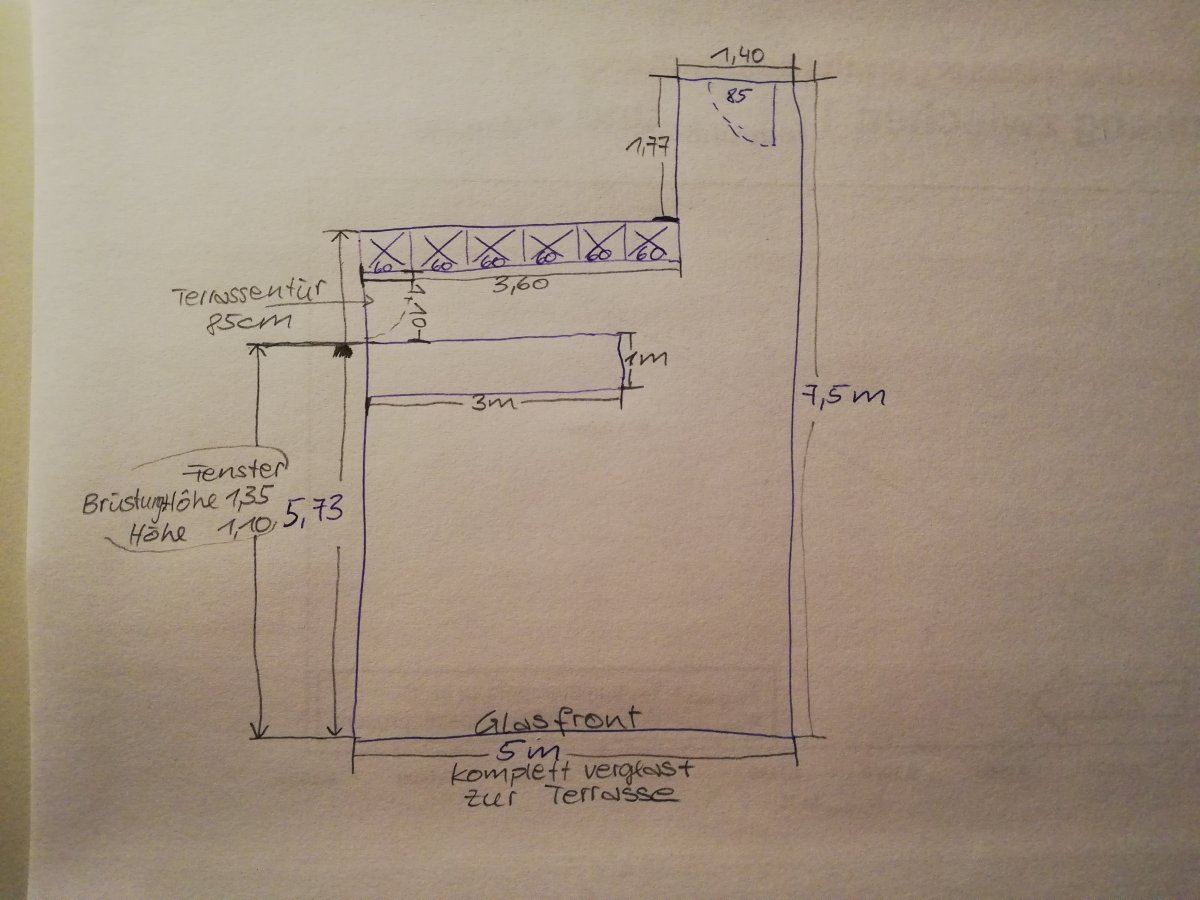 1,40
85
1,77
60 60 60 60 60 60
3,60
Terrassentür
85cm
1,10
1m
3m
7,5m
Fenster
BrüstungHöhe 1,35
Höhe 1,10
5,73
Glasfront
5m
komplett verglast
zur Terrasse